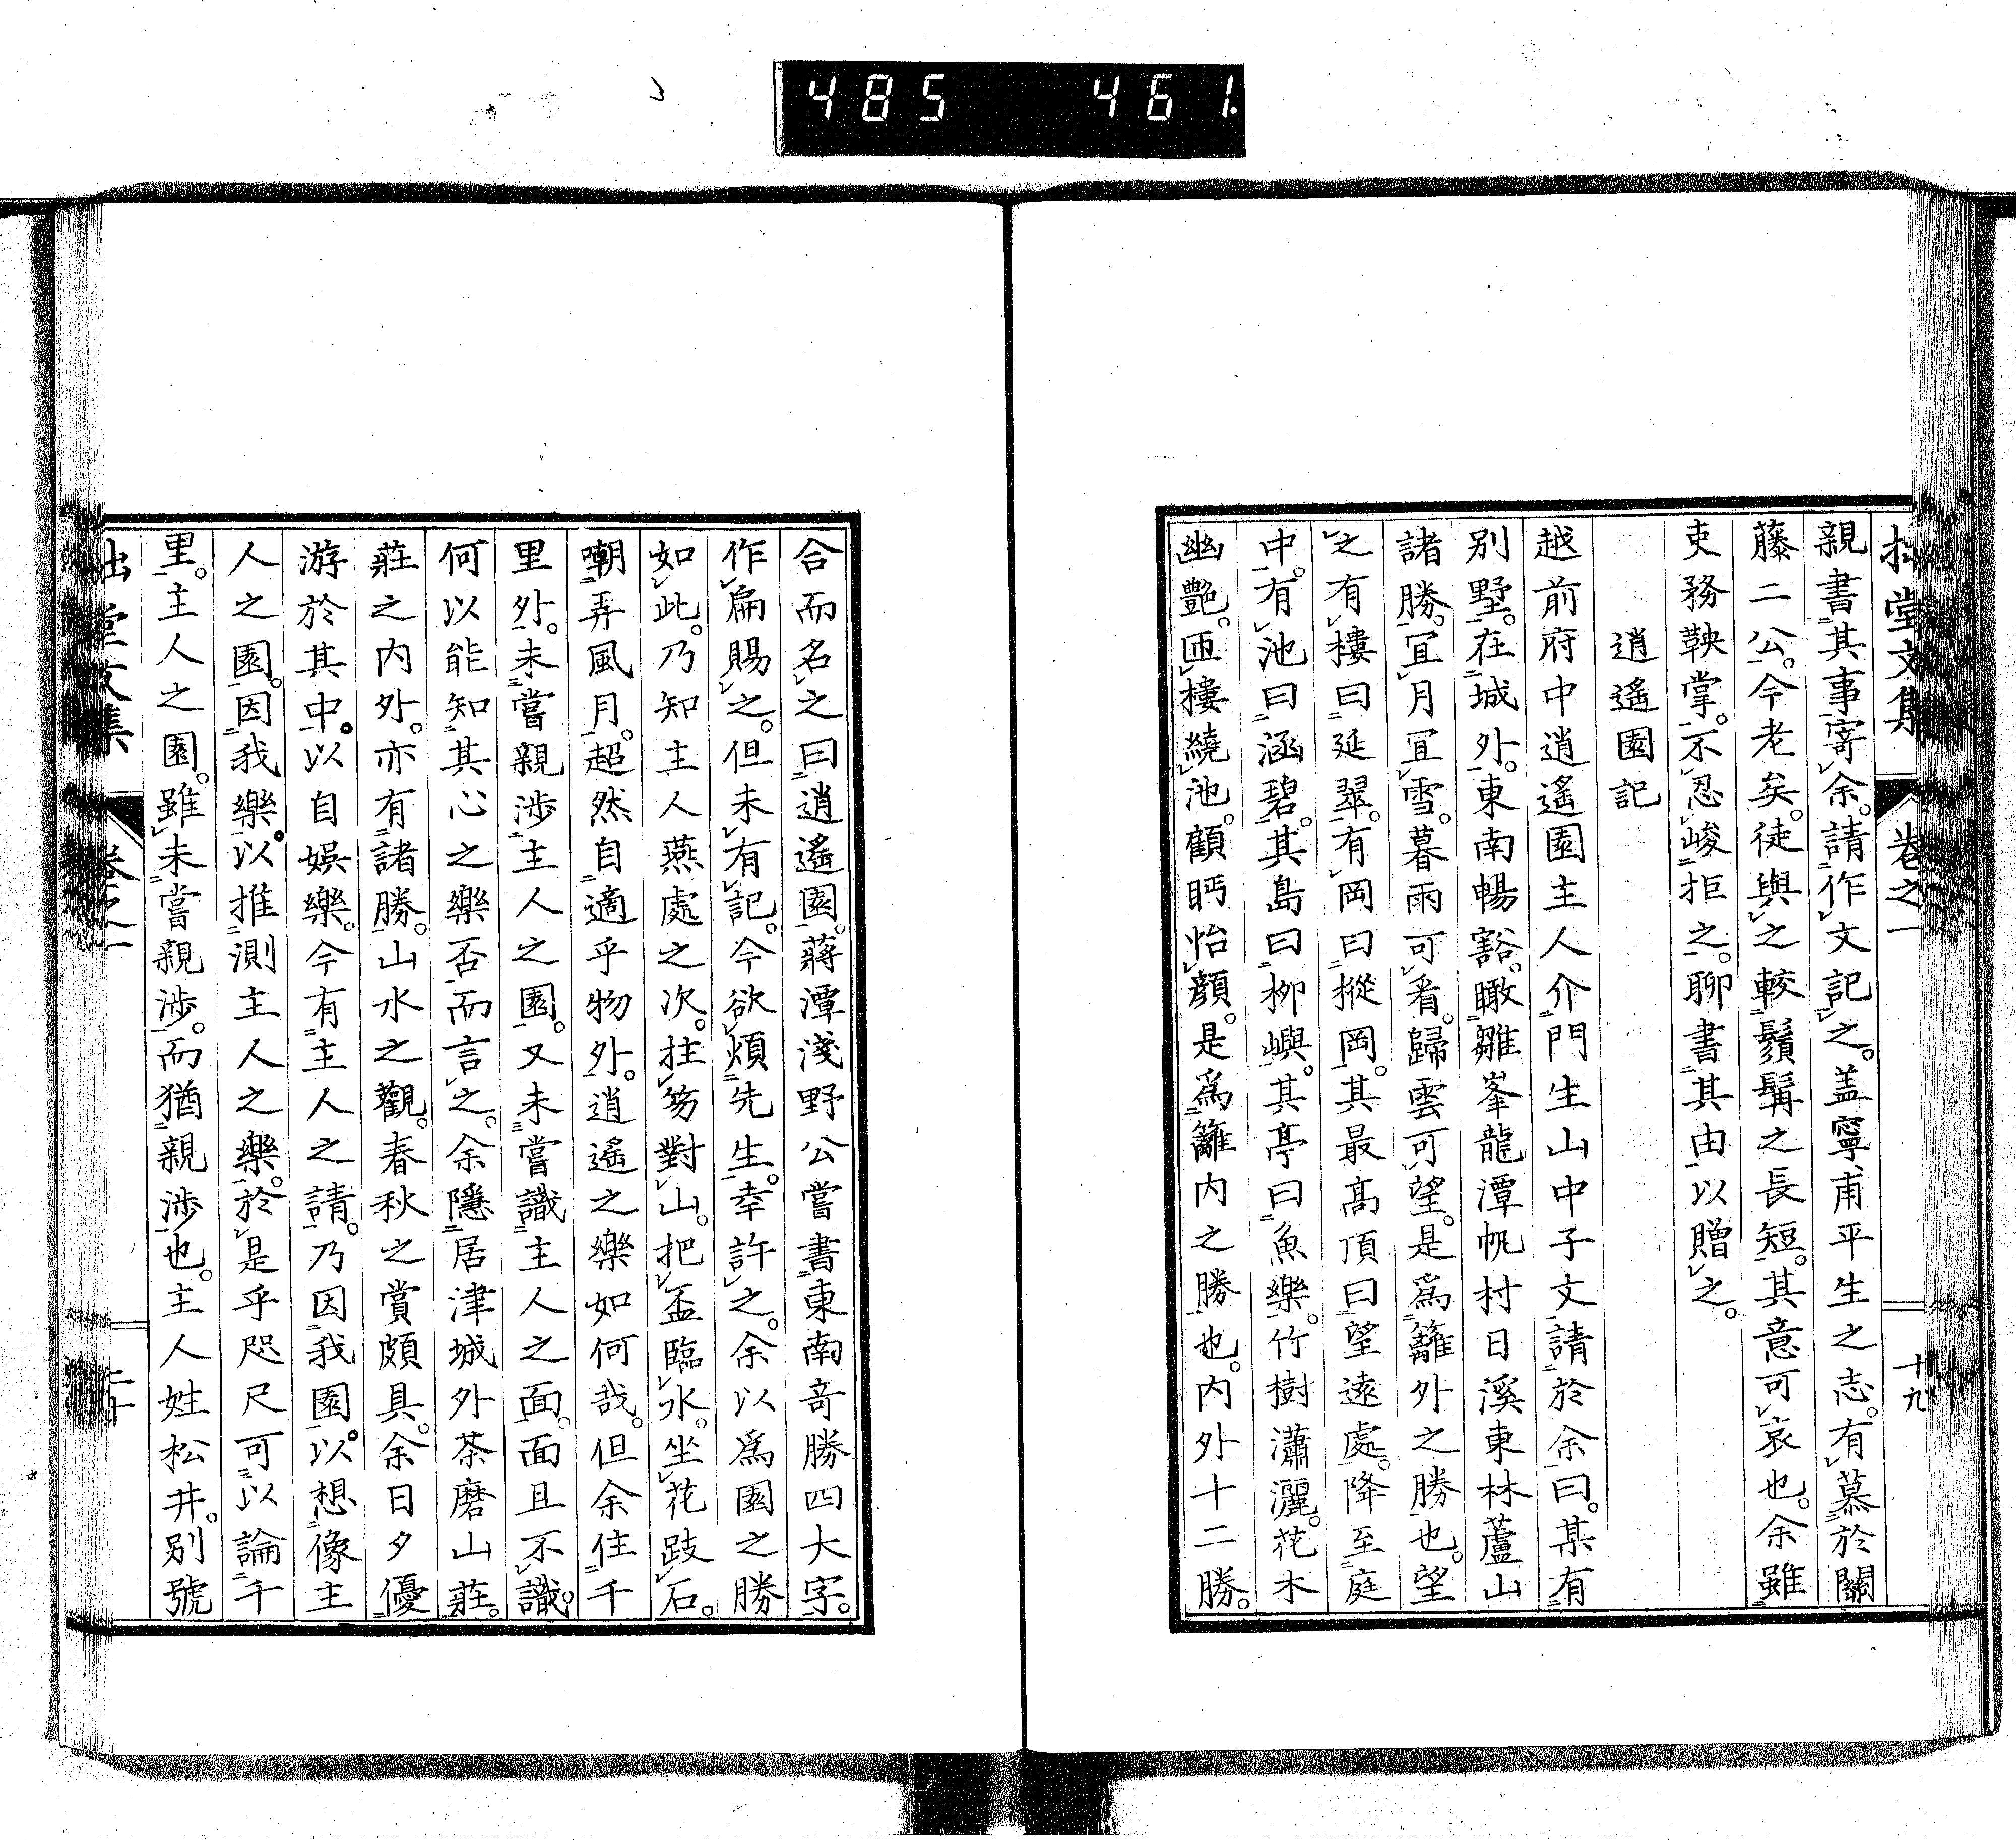 485 461
拙堂文集 卷之一 十九
親書其事寄余請作文記之。盖寧甫平生之志。有慕於關
藤二公。今老矣。徒與之較鬚髯之長短。其意可哀也。余雖
吏務鞅掌。不忍峻拒之。聊書其由以贈之。
逍遙園記
越前府中逍遙園主人介門生山中子文請於余曰。某有
別墅。在城外。東南暢豁。瞰雛峯龍潭帆村日溪東林蘆山
諸勝。宜月宜雪。暮雨可看。歸雲可望。是爲籬外之勝也。望
之有樓曰延翠。有岡曰摐岡。其最高頂曰望遠處。降至庭
中。有池曰涵碧。其島曰柳嶼。其亭曰魚樂。竹樹瀟灑。花木
幽艶。匝樓繞池。顧眄怡顔。是爲籬内之勝也。内外十二勝。
合而名之曰逍遙園。蔣潭淺野公嘗書東南奇勝四大字。
作扁賜之。但未有記。今欲煩先生。幸許之。余以爲園之勝
如此。乃知主人燕處之次。拄笏對山。把盃臨水。坐花跂石。
嘲弄風月。超然自適乎物外。逍遙之樂如何哉。但余住千
里外。未嘗親涉主人之園。又未嘗識主人之面。面且不識。
何以能知其心之樂否而言之。余隱居津城外茶磨山莊。
莊之内外。亦有諸勝。山水之觀。春秋之賞頗具。余日夕優
游於其中。以自娯樂。今有主人之請。乃因我園。以想像主
人之園。因我樂。以推測主人之樂。於是乎咫尺可以論千
里。主人之園。雖未嘗親涉。而猶親涉也。主人姓松井。別號
拙堂文集 卷之一 二十